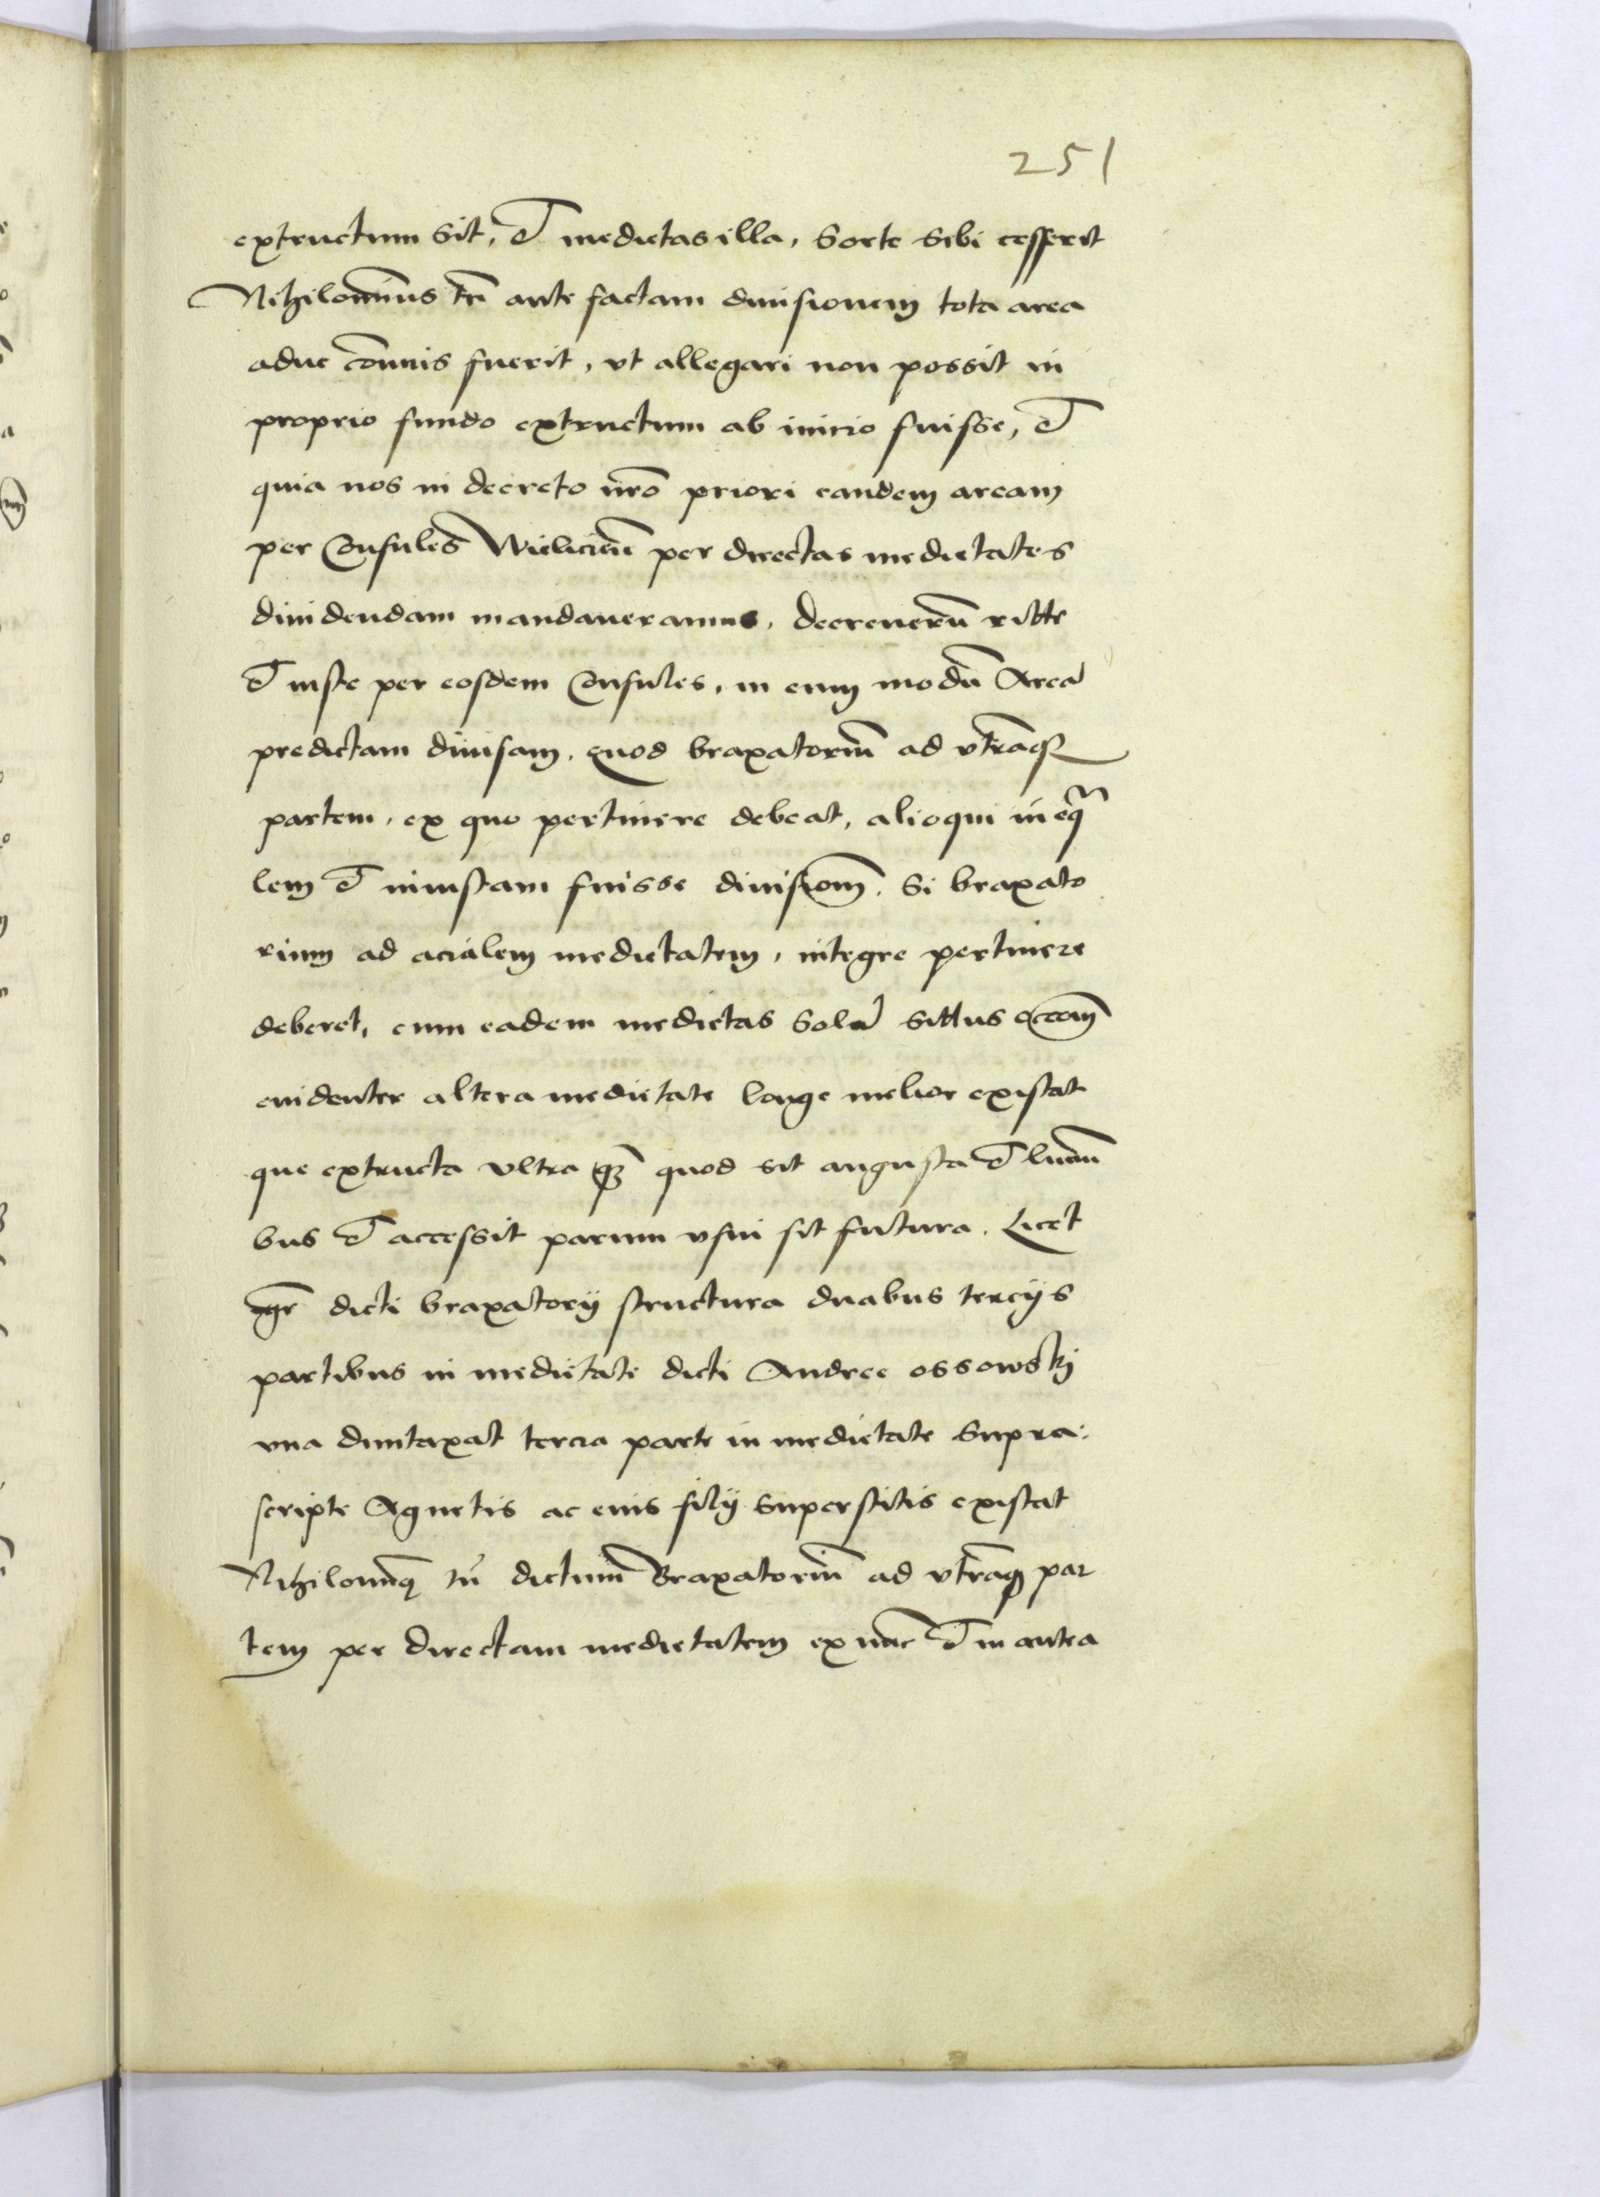 251
extructum sit, et medietas illa, sorte sibi cesserit
Nihilominus tn̄ ante factam diuisionem tota area
aduc cōmunis fuerit, vt allegari non possit in
proprio fundo extructum ab inicio fuisse, et
quia nos in decreto nr̄o priori eandem aream
per Consules Wielicien̄ per directas medietates
diuidendam mandaueramus, decreuerūt ritte
et iuste per eosdem Consules, in eum modū Areā
predictam diuisam, quod braxatoriū ad vtramq
partem, ex quo pertinere debeat, alioqui ineqa
lem et iniustam fuisse diuisionē. Si braxato
rium ad acialem medietatem, integre pertinere
deberet, cum eadem medietas sola sittus occōne
euidenter altera medietate longe melior existat
que extructa vltra quod sit angusta et lumini
bus et accessit parum vsui sit futura. Licet
igr̄ dicti braxatorij structura duabus tercijs
partibus in medietate dicti Andree ossowskj
vna duntaxat tercia parte in medietate supra:
scripte Agnetis ac eius filij superstitis existat
Nihilominq tn̄ dictum Braxatoriū ad vtramq par
tem per directam medietatem ex nūc et in antea